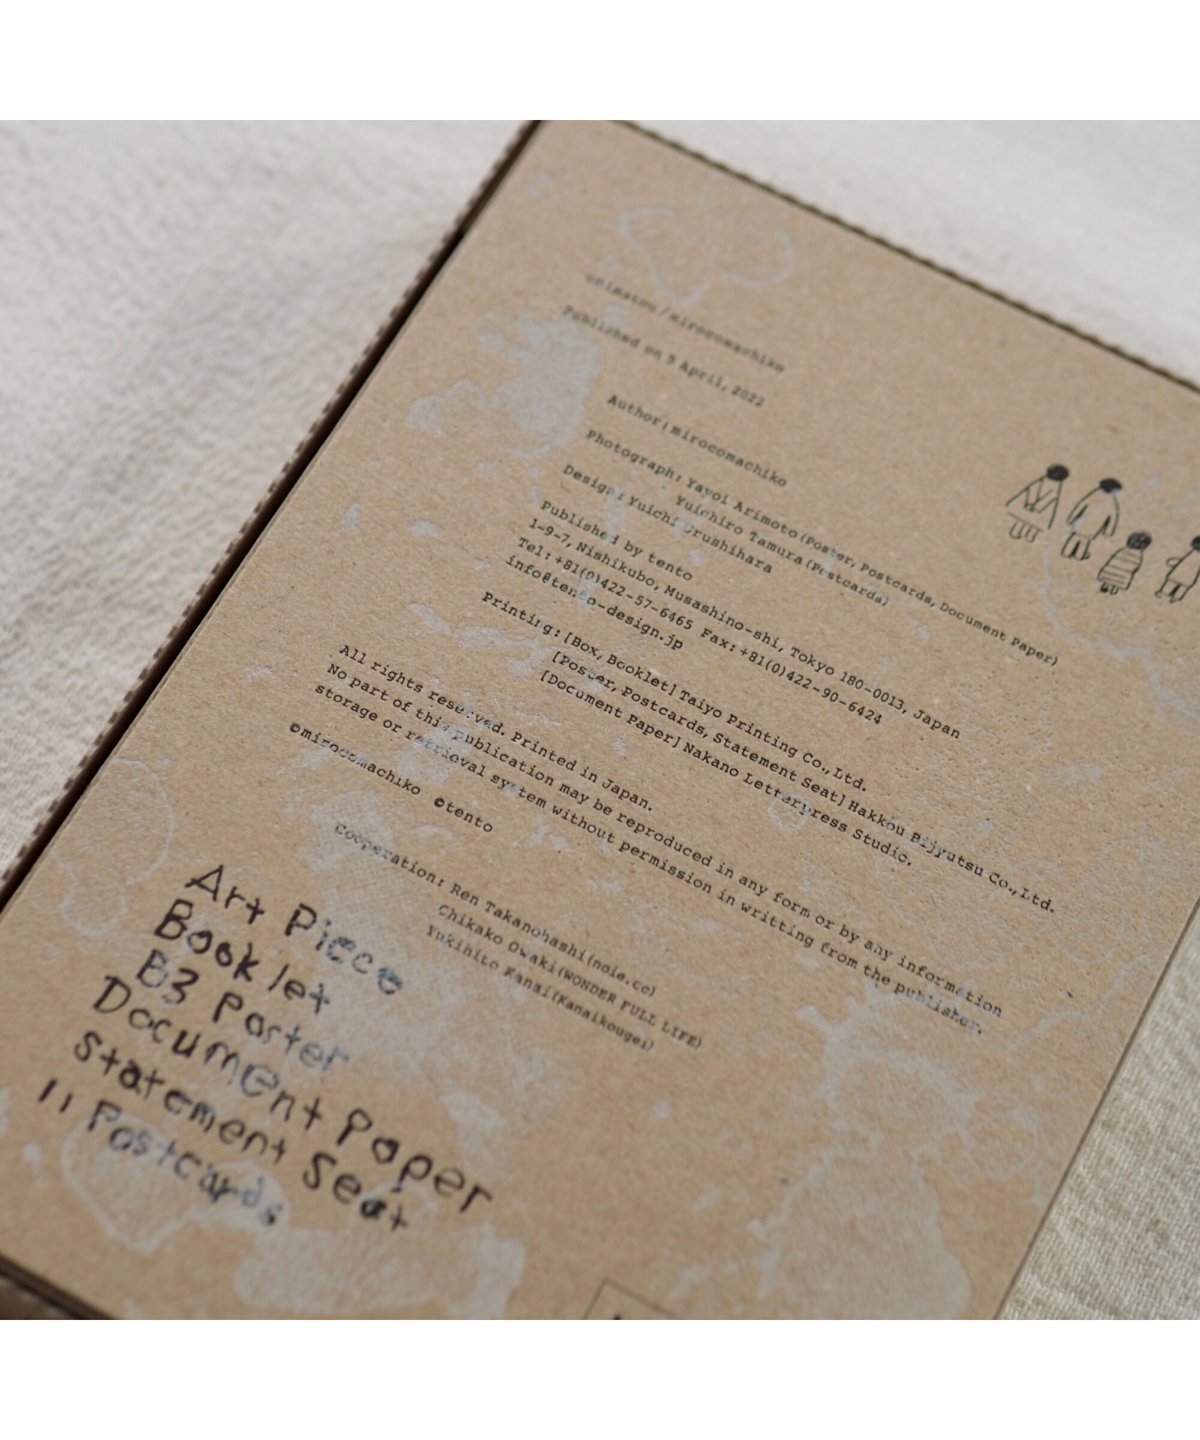 unimatou/mirocomachiko
Published on 5 April, 2022
Author: mirocomachiko
Photograph: Yayoi Arimoto(Poster, Postcards, Document Paper)
Yuichiro Tamura(Postcards)
Design: Yuichi Urushihara
Published by tento
1-9-7, Nishikubo, Musashino-shi, Tokyo 180-0013, Japan
Tel: +81(0)422-57-6465 Fax: +81(0)422-90-6424
info@tento-design.jp
Printing: [Box, Booklet] Taiyo Printing Co., Ltd.
[Poster, Postcards, Statement Seat] Hakkou Bijyutsu Co., Ltd.
[Document Paper] Nakano Letterpress Studio.
All rights reserved. Printed in Japan.
No part of this publication may be reproduced in any form or by any information
storage or retrieval system without permission in writting from the publisher.
©mirocomachiko ©tento
Cooperation: Ren Takahashi(noie.cc)
Chikako Owaki(WONDER FULL LIFE)
Yukihito Kanai(Kanaikougei)
Art Piece
Booklet
B3 Poster
Document Paper
Statement Seat
11 Postcards